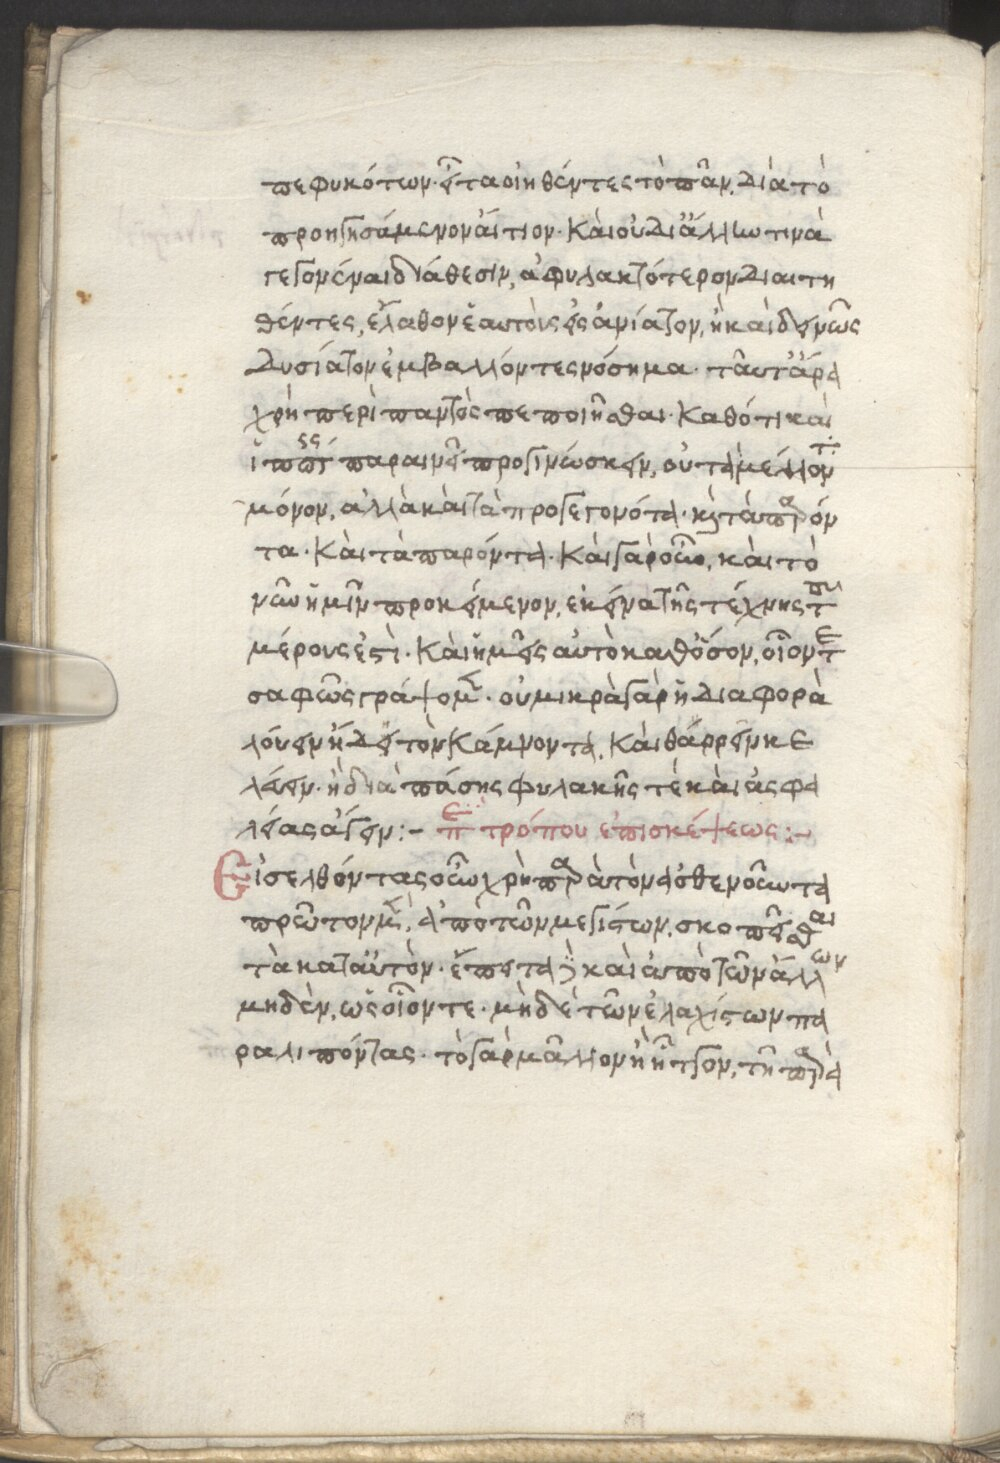 πεφυκότων. εἶτα οἰηθέντες τὸ πᾶν, διὰ τὸ
προηγησάμενον αἴτιον. καὶ οὐ δι' ἄλλω τινὰ
γεγονέναι διάθεσιν, ἀφυλακτότερον διαιτη
θέντες, ἔλαθον ἑαυτοὺς εἰς ἀνίατον, ἢ καὶ δεινῶς
δυσίατον ἐμβαλλόντες νόσημα. ταῦτ' ἄρα
χρὴ περὶ παντὸς πεποιῆσθαι. καθότι καὶ
ἱππς παραινεῖ προγινώσκειν, οὐ τὰ μέλλοντ
μόνον, ἀλλὰ καὶ τὰ προγεγονότα. κὶ τὰ παρόν
τα. καὶ τὰ παρόντα. καὶ γὰρ οὖν, καὶ τὸ
νῦν ἡμῖν προκείμενον, ἐκείνα τῆς τέχνης τ
μέρους ἐστὶ. καὶ ἡμεῖς αὐτὸ καθ' ὅσον, οἷόν τε
σαφῶς γράψομεν. οὐ μικρὰ γὰρ ἡ διαφορὰ
λούειν ἤδε τὸν κάμνοντα. καὶ θάρρειν κε
λεύειν. ἢ διὰ πάσης φυλακῆς τὲ καὶ ἀσφα
λείας ἄγειν:- πε τρόπου ἐπισκέψεως:-
Εἰσελθόντας οὖν χρὴ παρὰ τὸν ἀσθενοῦντα
πρῶτον μεν, ἀπὸ τῶν μεγίστων, σκοπεῖσθαι
τὰ κατ' αὐτὸν. ἔπειτα δὲ καὶ ἀπὸ τῶν ἄλλων
μηδὲν, ὡς οἷόν τε. μὴδὲ τῶν ἐλαχίστων πα
ραλιπόντας. τὸ γὰρ μᾶλλον ἢ ἧττον, τῆ παρὰ